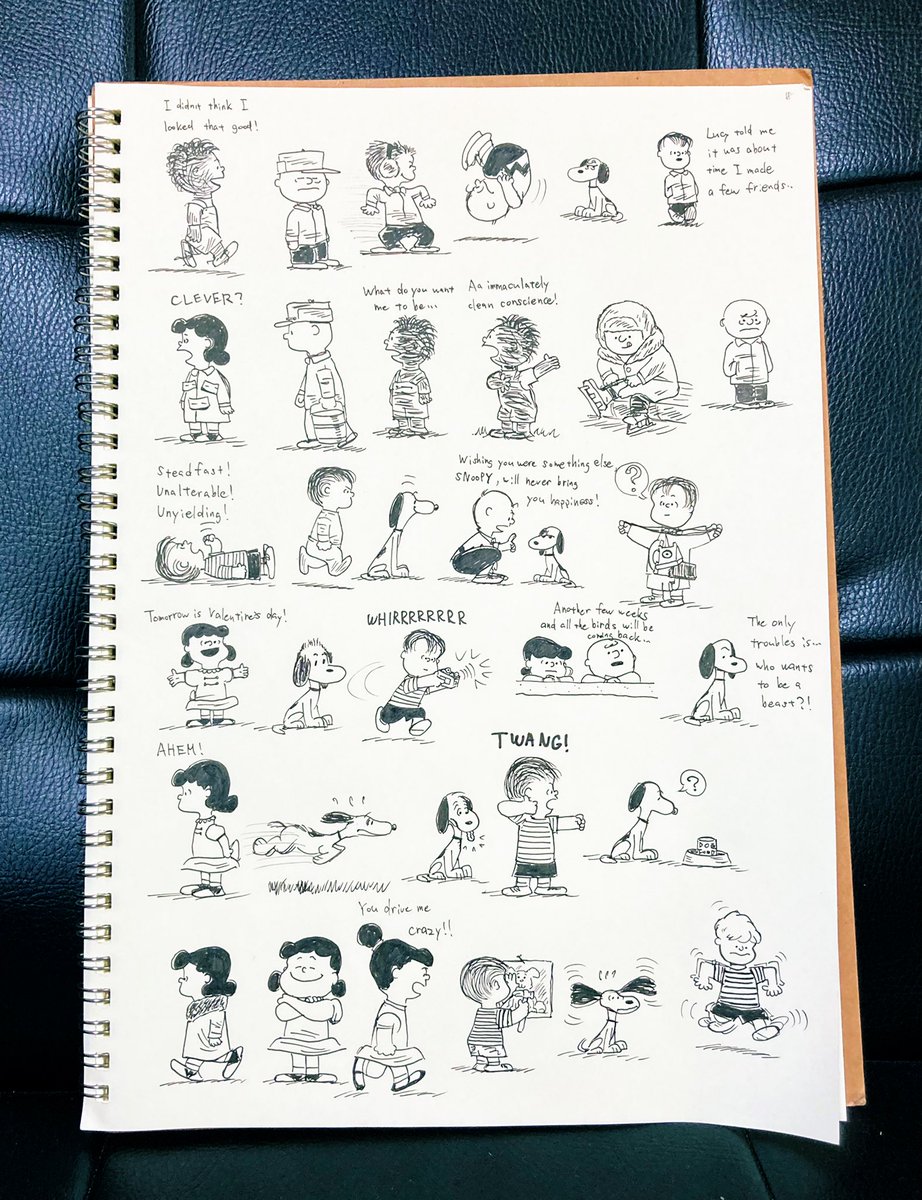 I didn't think I
looked that good!
Lucy told me
it was about
time I made
a few friends..
CLEVER?
What do you want
me to be...
Aa immaculately
clean conscience!
Steadfast!
Unalterable!
Unyielding!
Wishing you were something else
SNOOPY, will never bring
you happiness!
?
Tomorrow is Valentine's day!
WHIRRRRRRRR
Another few weeks
and all the birds will be
coming back...
The only
troubles is...
who wants
to be a
beast?!
AHEM!
TWANG!
?
DOG
You drive me
crazy!!